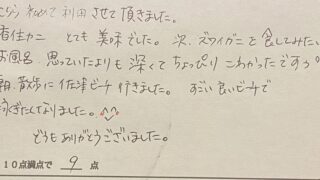 こちら初めて利用させて頂きました。
香住カニ とても美味でした。次、ズワイガニを食してみたい
お風呂、思っていたよりも深くてちょっぴりこわかったですが
朝、散歩に佐津ビーチ行きました。すごい良いビーチで
泳ぎたくなりました。^^
どうもありがとうございました。
10点満点で 9 点